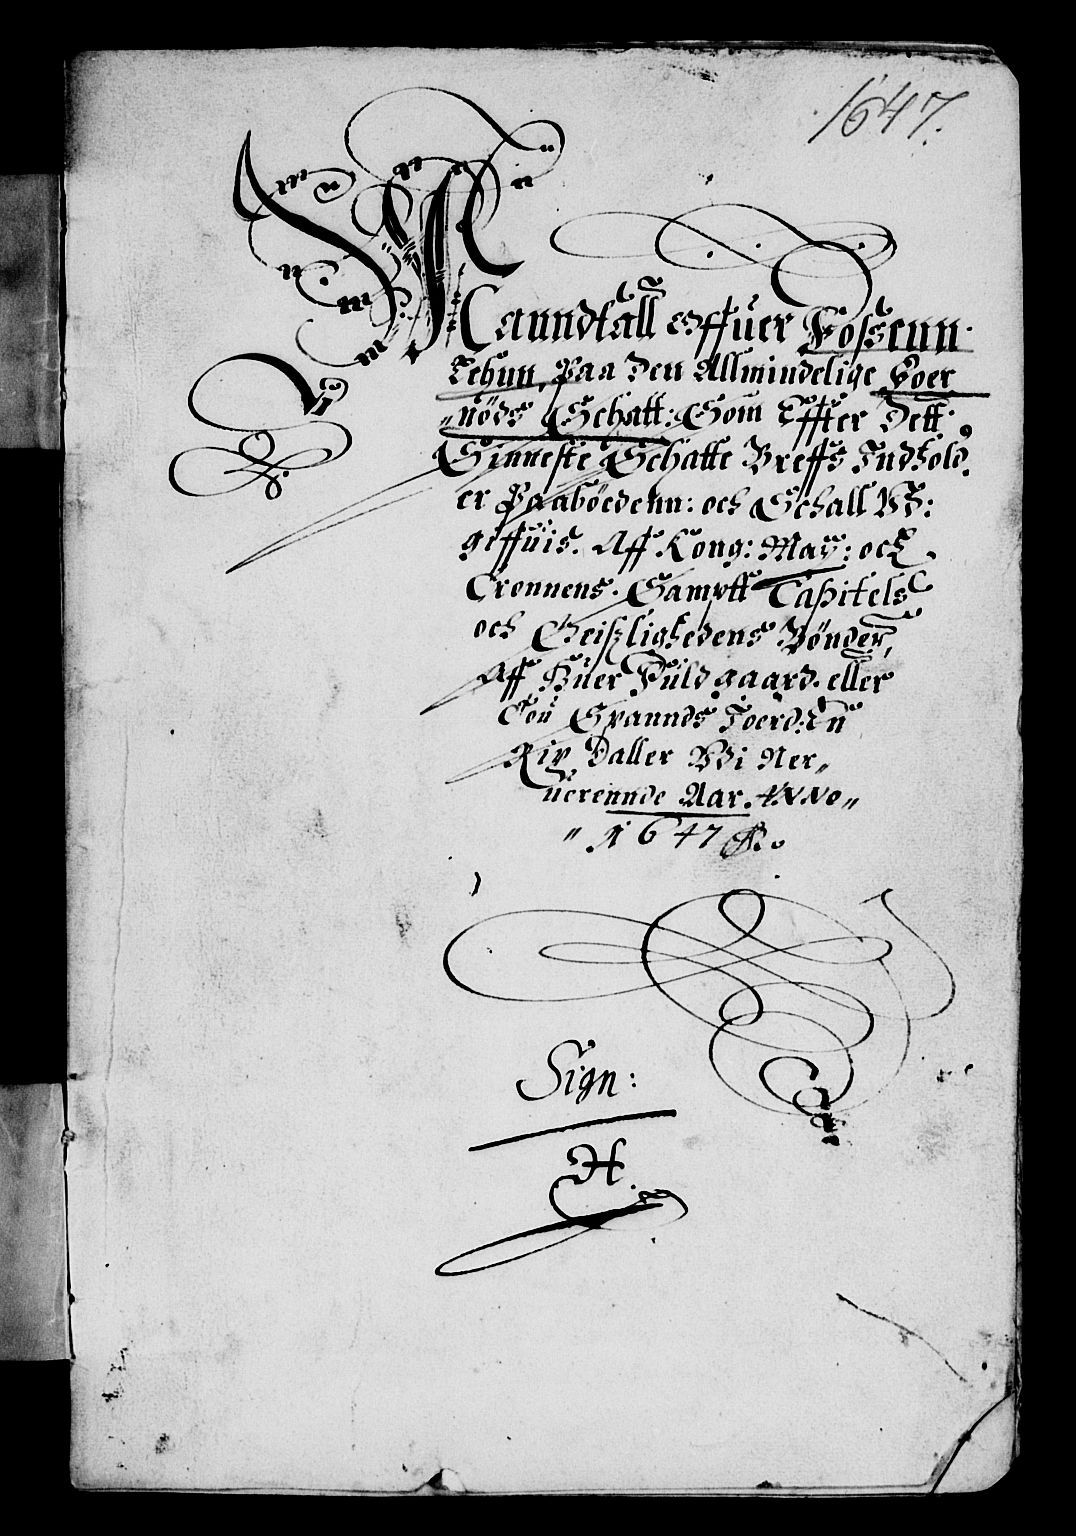 1647.
Manndtall Offuer Foßenn
Lehnn, Paa den Allmindelige Foer
nöds Schatt: Som Effter Dett
Sinneste Schatte Breffs Indhold,
er Paaböedenn: och Schall Vd:
giffuis. Aff Kong: May: och
Cronnens. Sampt Capitels
och Geistlighedens Bönder,
Aff Huer Fuld gaard. eller
Tou Spannds Joerd: En
Rix Daller Udi Ner„
uerennde Aar. ANNo„
„ 1647
Sign:
H.